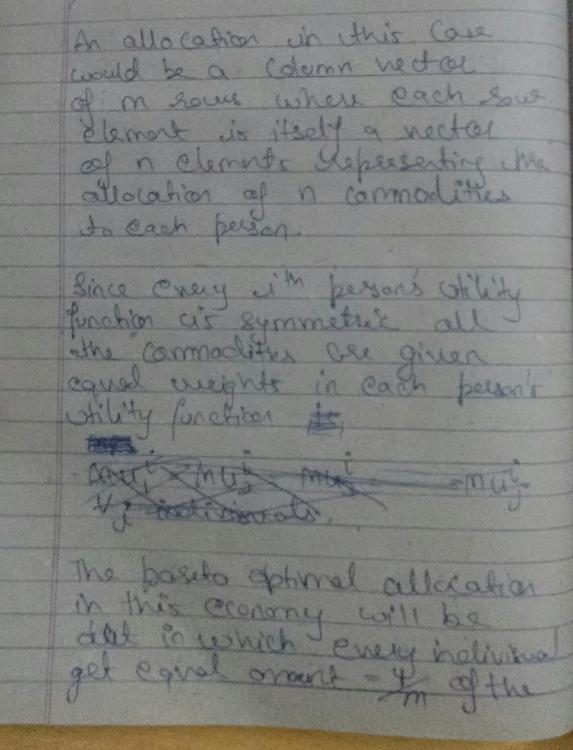 An allocation in this case
would be a column vector
of m rows where each row
element is itself a vector
of n elements representing the
allocation of n commodities
to each person.
Since every ith person's utility
function is symmetric all
the commodities are given
equal weights in each person's
utility function
The pareto optimal allocation
in this economy will be
that in which every individual
get equal amount = of the